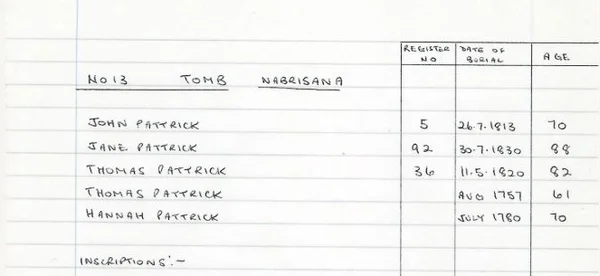 REGISTER NO DATE OF BURIAL AGE
No 13 TOMB NABRISANA
JOHN PATTRICK 5 26.7.1813 70
JANE PATTRICK 92 30.7.1830 88
THOMAS PATTRICK 36 11.5.1820 82
THOMAS PATTRICK AUG 1757 61
HANNAH PATTRICK JULY 1780 70
INSCRIPTIONS:-